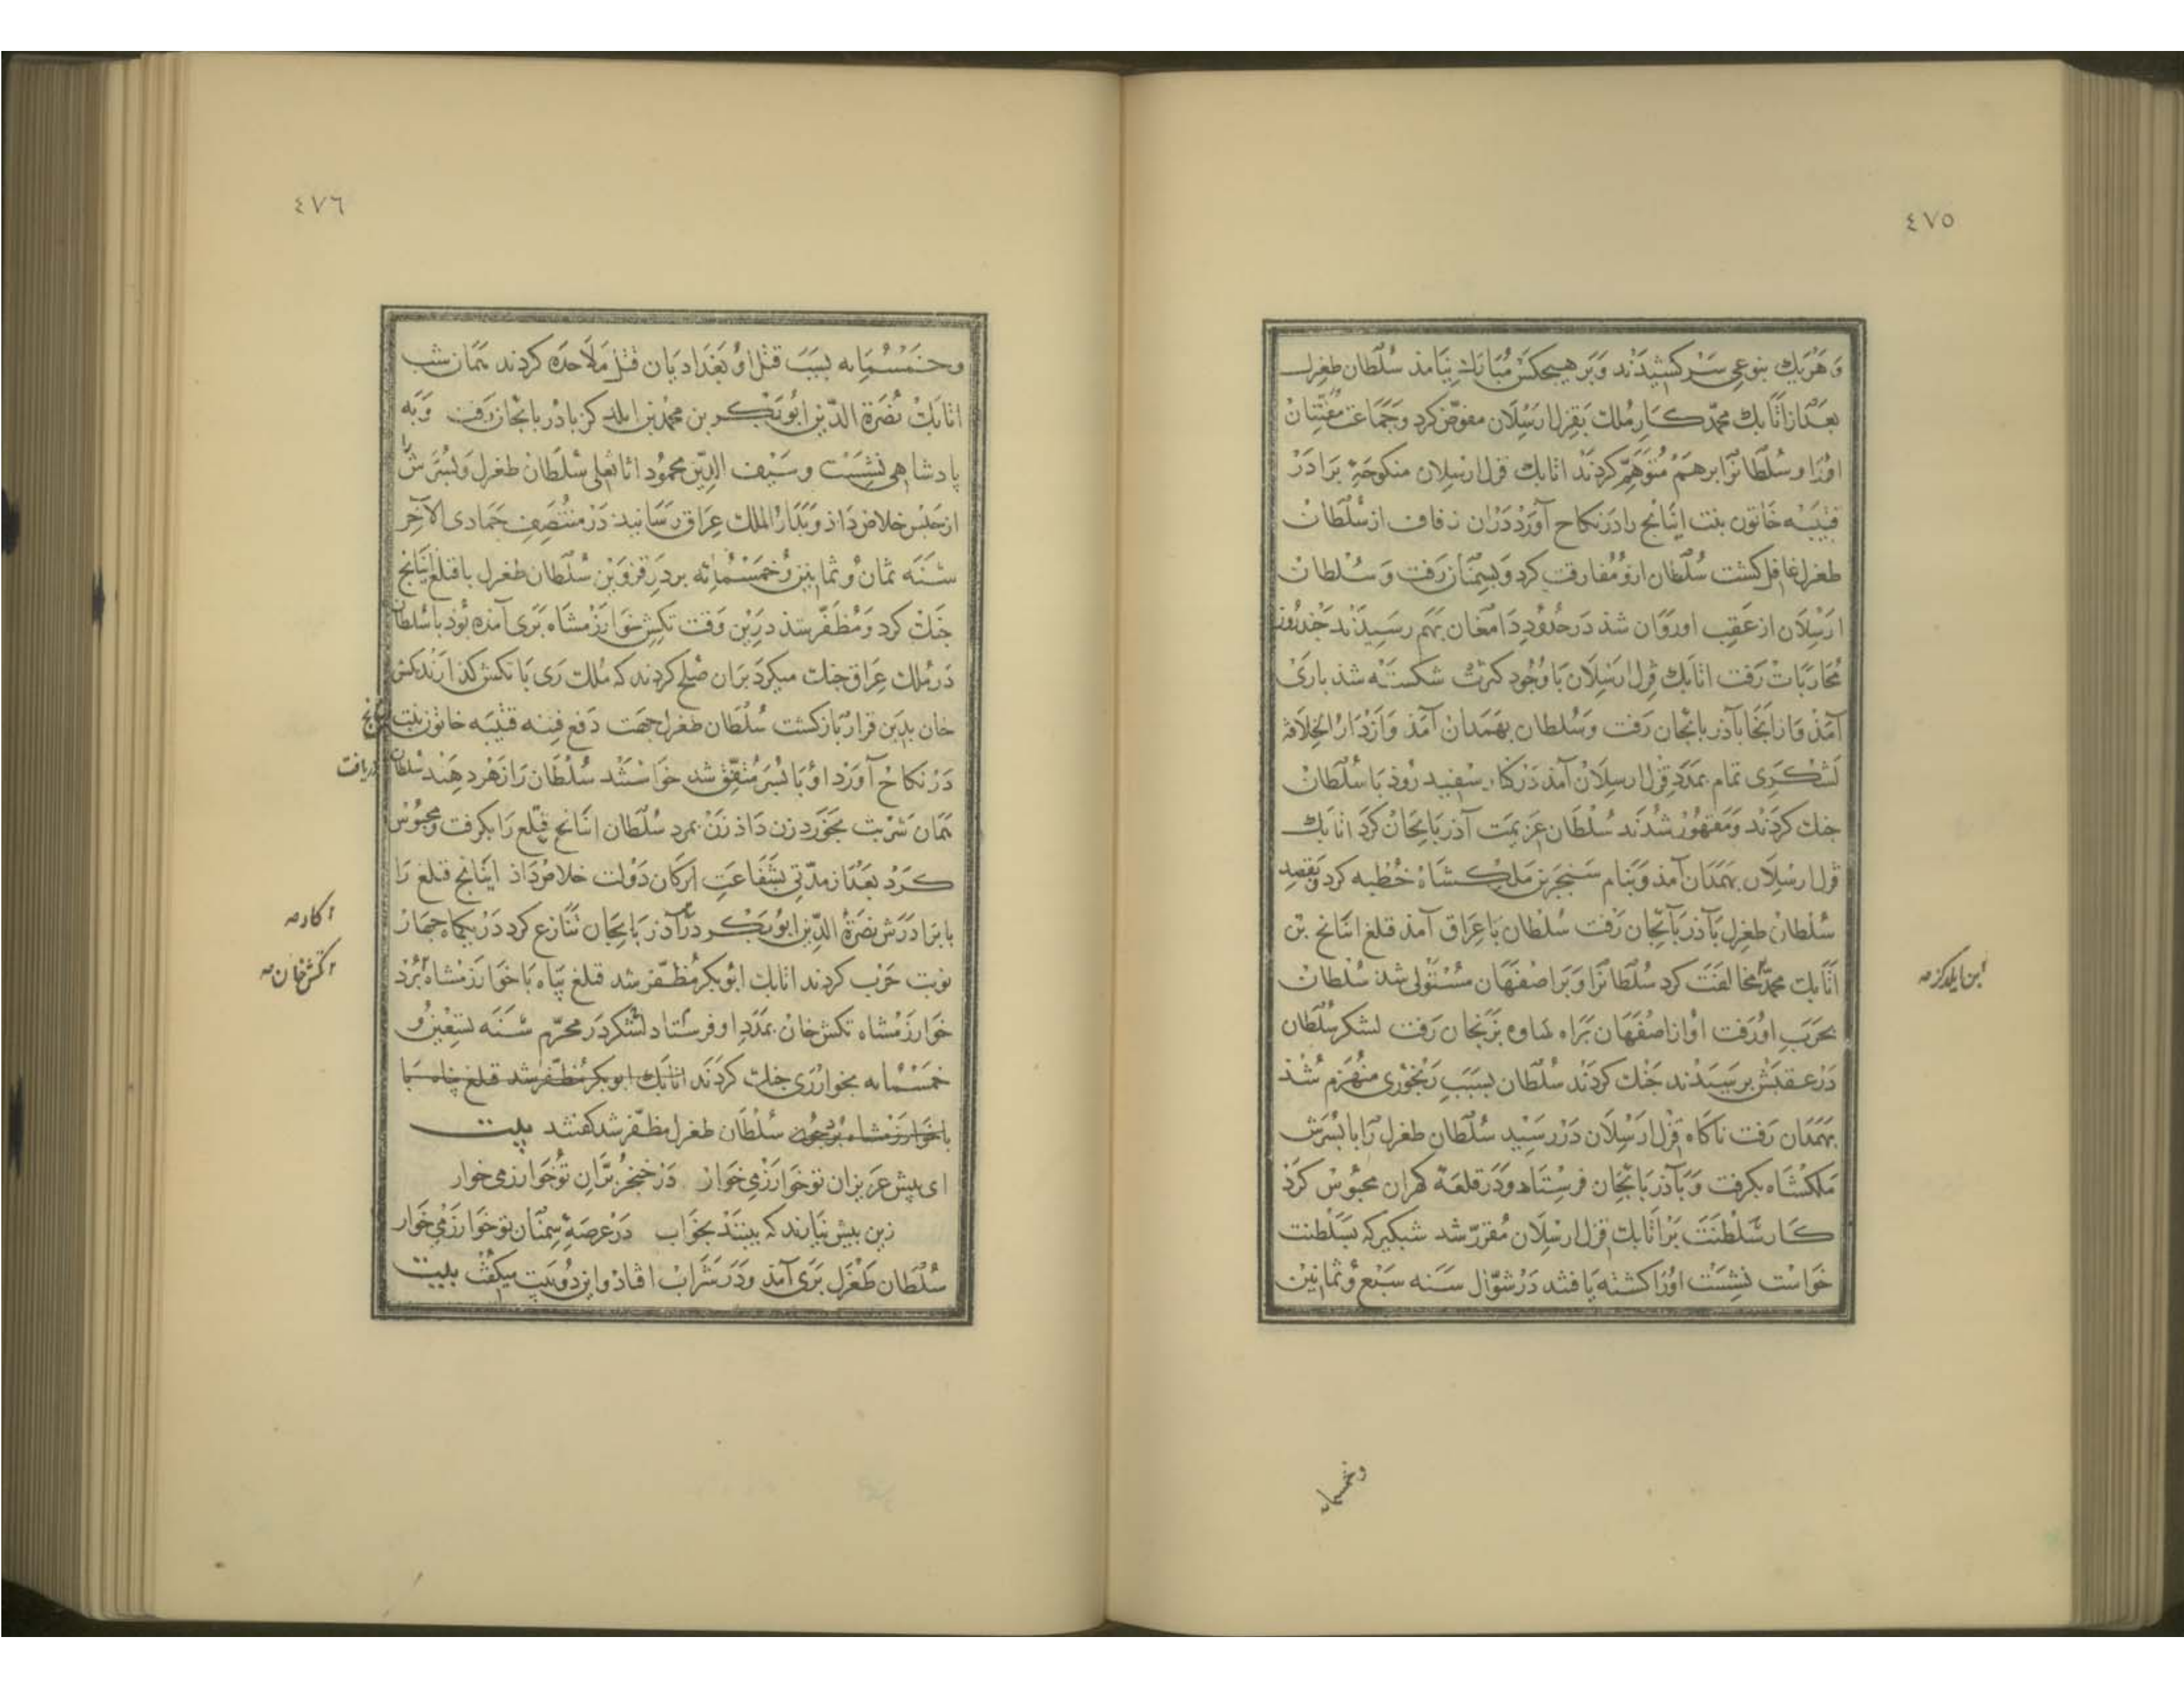 ٤٧٥
و هریك بنوعی سر کشیدند و بر هیچکس مبارك نیامد سلطان طغرل
بعد از اتابك محمد کار ملك بقزل ارسلان مفوض کرد و جماعت مفتنان
اورا و سلطانرا بر هم متوهم کردند اتابك قزل ارسلان منکوحهٔ برادر
قتیبه خاتون بنت اینانج را در نکاح آورد در ان زفاف از سلطان
طغرل غافل کشت سلطان ازو مفارقت کرد و بسمنان رفت و سلطان
ارسلان از عقب او روان شد در حدود دامغان بهم رسیدند چند روز
محاربات رفت اتابك قزل ارسلان با وجود کثرت شکسته شد باری
آمذ و از انجا بآذربایجان رفت و سلطان بهمدان آمذ و از دار الخلافه
لشکری تمام بمدد قزل ارسلان آمذ در کنار سفید روذ با سلطان
جنك کردند و مقهور شدند سلطان عزیمت آذربایجان کرد اتابك
قزل ارسلان بهمدان آمذ و بنام سنجر بن ملکشاه خطبه کرد و بقصد
سلطان طغرل بآذربایجان رفت سلطان با عراق آمذ قتلغ اینانج بن
اتابك محمد مخالفت کرد سلطانرا و بر اصفهان مستولی شد سلطان
ابن ایلدکز صه
بحرب او رفت او از اصفهان براه ساوه بزنجان رفت لشکر سلطان
در عقبش برسیدند جنك کردند سلطان بسبب رنجوری منهزم شذ
بهمدان رفت ناکاه قزل ارسلان در رسید سلطان طغرل را با پسرش
ملکشاه بکرفت و بآذربایجان فرستاد و در قلعهٔ کهران محبوس کرد
کار سلطنت بر اتابك قزل ارسلان مقرر شد شبکیر که بسلطنت
خواست نشست اورا کشته یافتند در شوال سنه سبع و ثمانین
وخمسمایه
٤٧٦
وخمسمایه بسبب قتل او بغدادیان قتل ملاحده کردند همان شب
اتابك نصرة الدین ابوبکر بن محمد بن ایلدکز باذربایجان رفت و به
پادشاهی نشست و سیف الدین محمود سلطان طغرل و پسرش را
از حبس خلاص داد و بدار الملك عراق رسانید در منتصف جمادی الآخر
سنه ثمان و ثمانین و خمسمائه بر در قزوین سلطان طغرل با قتلغ اینانج
جنك کرد و مظفر شد درین وقت تکش خوارزمشاه بری آمده بود با سلطان
در ملك عراق جنك میکرد بران صلح کردند که ملك ری با تکش کذارند تکش
خان بدین قرار باز کشت سلطان طغرل جهت دفع فتنه قتیبه خاتون بنت اینانج
در نکاح آورد او با پسر متفق شد خواستند سلطان را زهر دهند سلطان دریافت
همان شربت بخورد زن داذ زن بمرد سلطان اینانج قتلغ را بکرفت و محبوس
کرد بعد از مدتی بشفاعت ارکان دولت خلاص داذ اینانج قتلغ را
با برادرش نصرة الدین ابوبکر در آذربایجان تنازع کرد در یکماه چهار
ا کاد صه
نوبت حرب کردند اتابك ابوبکر مظفر شد قتلغ پناه با خوارزمشاه برد
ا تکش خان صه
خوارزمشاه تکش خان بمدد او فرستاد لشکر در محرم سنه تسعین و
خمسمایه بخوار ری جنك کردند اتابك ابوبکر مظفر شد قتلغ پناه با
با خوارزمشاه برد چون سلطان طغرل مظفر شد کفتند بیت
ای پیش عزیزان تو خوارزمی خوار در خنجر بران تو خوارزمی خوار
زین بیش نیارند که بینند بخواب در عرصهٔ سمنان تو خوارزمی خوار
سلطان طغرل بری آمذ و در شراب افتاد و این دو بیت میکفت بیت